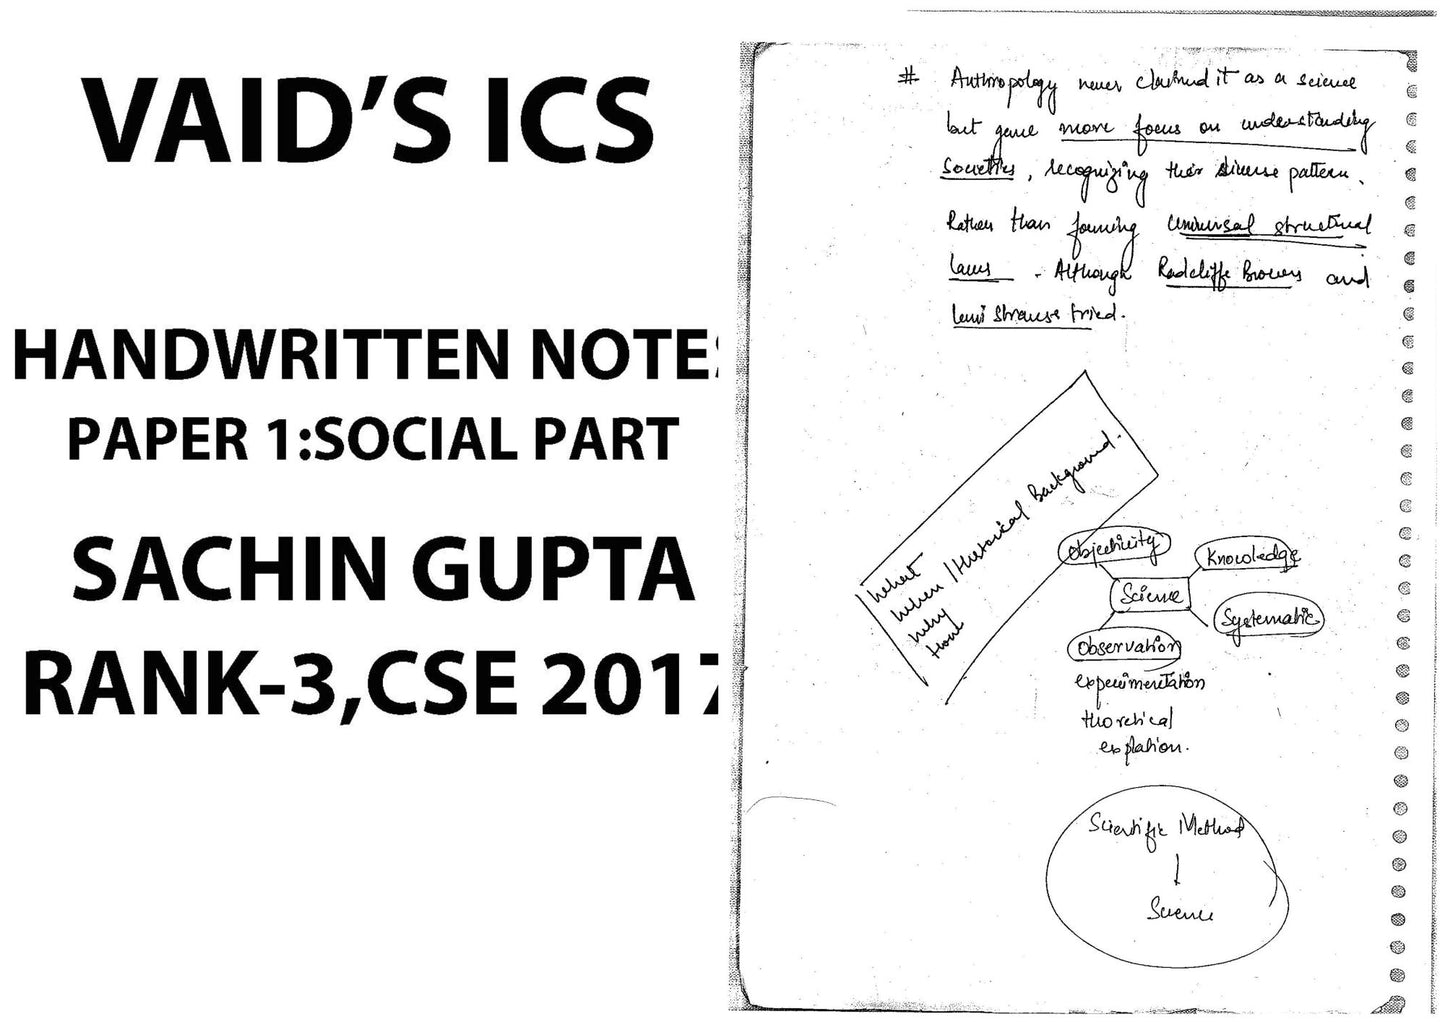 VAID’S ICS
HANDWRITTEN NOTES
PAPER 1:SOCIAL PART
SACHIN GUPTA
RANK-3,CSE 2017
# Anthropology never claimed it as a science
but gave more focus on understanding
societies, recognizing their diverse pattern.
Rather than forming universal structural
laws. Although Radcliffe Browns and
Levi Strauss tried.
What
When / Historical Background.
Why
How
Objectivity
Knowledge
Science
Systematic
Observation
experimentation
thoretical
explation.
Scientific Method
Science